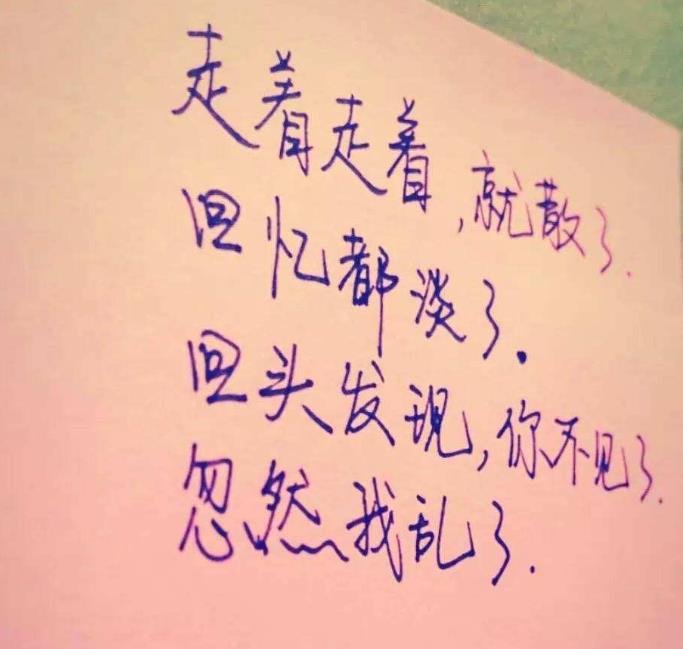 走着走着,就散了.
回忆都淡了.
回头发现,你不见了.
忽然我乱了.